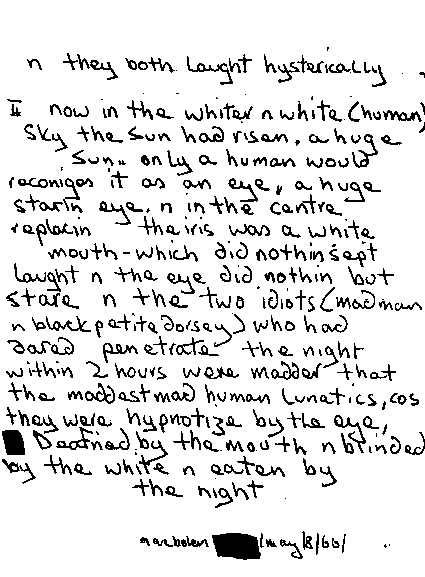 n they both laught hysterically
II now in the whiter n white (human)
sky the sun had risen, a huge
sun.. only a human would
reconiges it as an eye, a huge
starin eye. n in the centre
replacin the iris was a white
mouth - which did nothin sept
laught n the eye did nothin but
stare n the two idiots (madman
n black petite dorsey) who had
dared penetrate the night
within 2 hours were madder that
the maddest mad human lunatics, cos
they were hypnotize by the eye,
Deafned by the mouth n blinded
by the white n eaten by
the night
marc bolan /may/8/66/